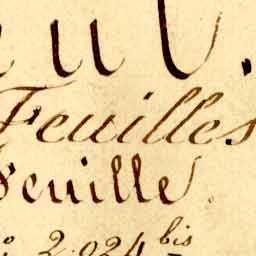 Feuilles
Feuille.
2.024 bis